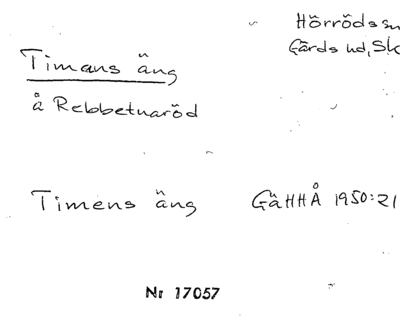 Hörröds sn
Gärds hd, Sk
Timans äng
å Rebbetuaröd
Timens äng GäHHÅ 1950:21
Nr 17057